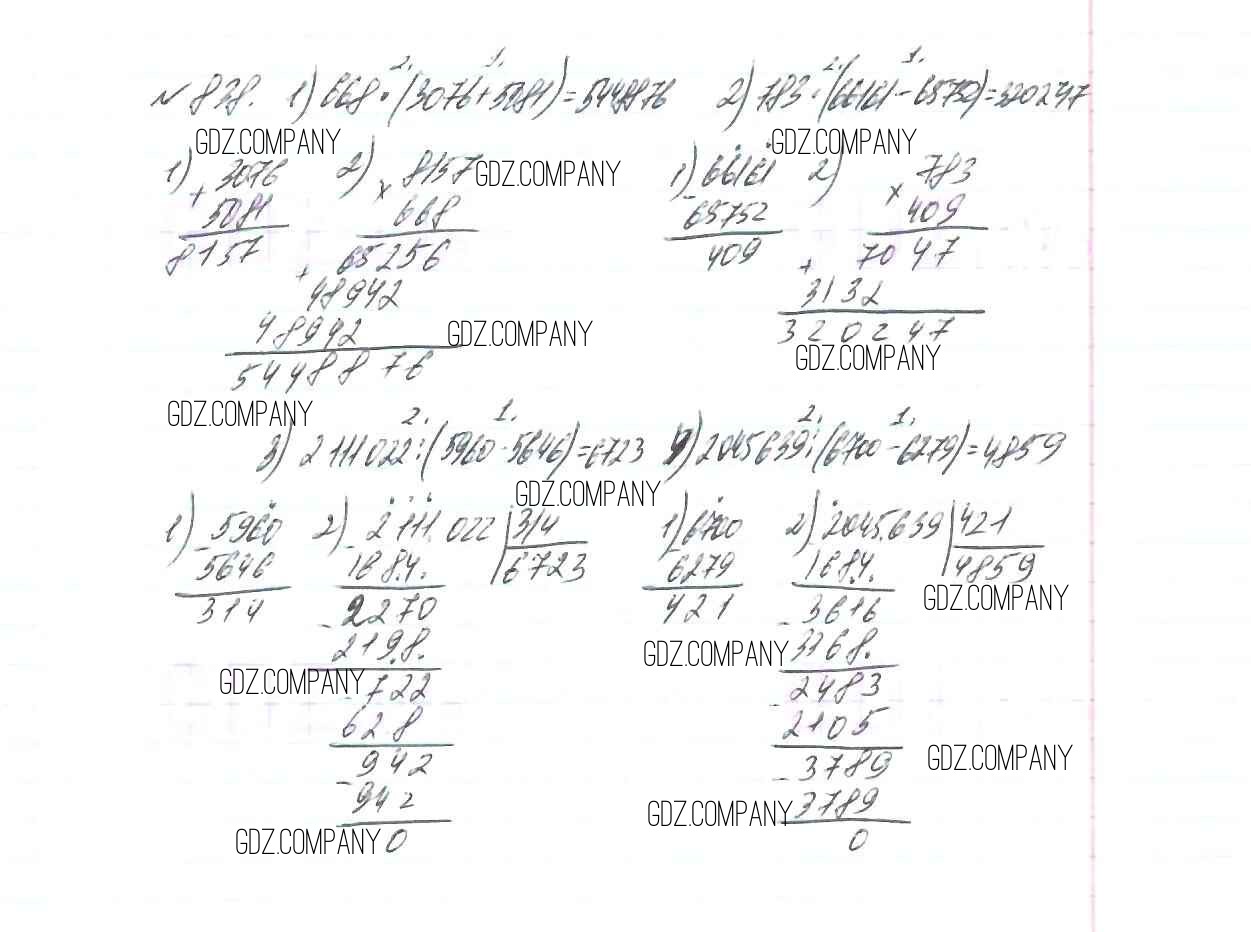 № 838. 1) 668 · (3076 + 5081) = 5448876 2) 783 · (66161 - 65752) = 320247
GDZ.COMPANY GDZ.COMPANY
1) 3076 2) 8157 GDZ.COMPANY 1) 66161 2) 783
+ 5081 × 668 - 65752 × 409
8157 65256 409 7047
+ 48942 + 3132
48942 GDZ.COMPANY 320247
5448876 GDZ.COMPANY
GDZ.COMPANY
3) 2111022 : (5960 - 5646) = 6723 4) 2045639 : (6700 - 6279) = 4859
GDZ.COMPANY
1) 5960 2) 2111022 | 314 1) 6700 2) 2045639 | 421
- 5646 - 1884 6723 - 6279 - 1684 4859
314 2270 421 3616 GDZ.COMPANY
- 2198 GDZ.COMPANY - 3368
GDZ.COMPANY 722 2483
- 628 - 2105
942 3789 GDZ.COMPANY
- 942 GDZ.COMPANY - 3789
GDZ.COMPANY 0 0